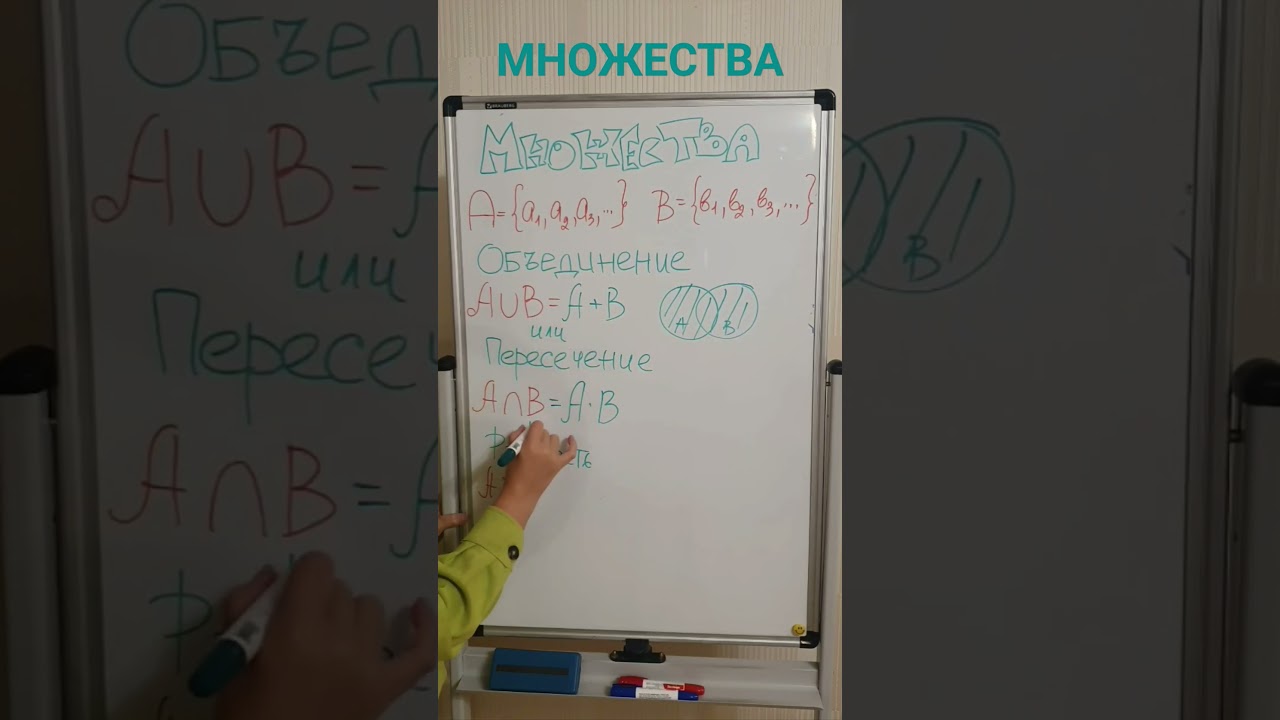 МНОЖЕСТВА
МНОЖЕСТВА
A={a₁,a₂,a₃,...} B={в₁,в₂,в₃,...}
Объединение
A∪B=A+B
A B
или
Пересечение
A∩B=A·B